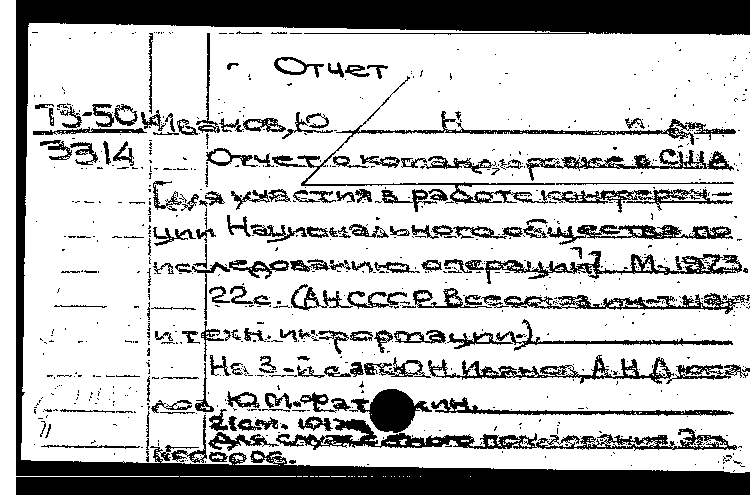 Отчет
73-50
3314
Иванов, Ю Н и др
Отчет о командировке в США
[для участия в работе конферен-
ции Национального общества по
исследованию операций]. М., 1973.
22 с. (АН СССР. Всесоюз. ин-т науч
и техн. информации).
На 3-й с авт. Ю.Н. Иванов, А.Н.
лов, Ю.М.
Для служебного пользования. Экз.
№00006.